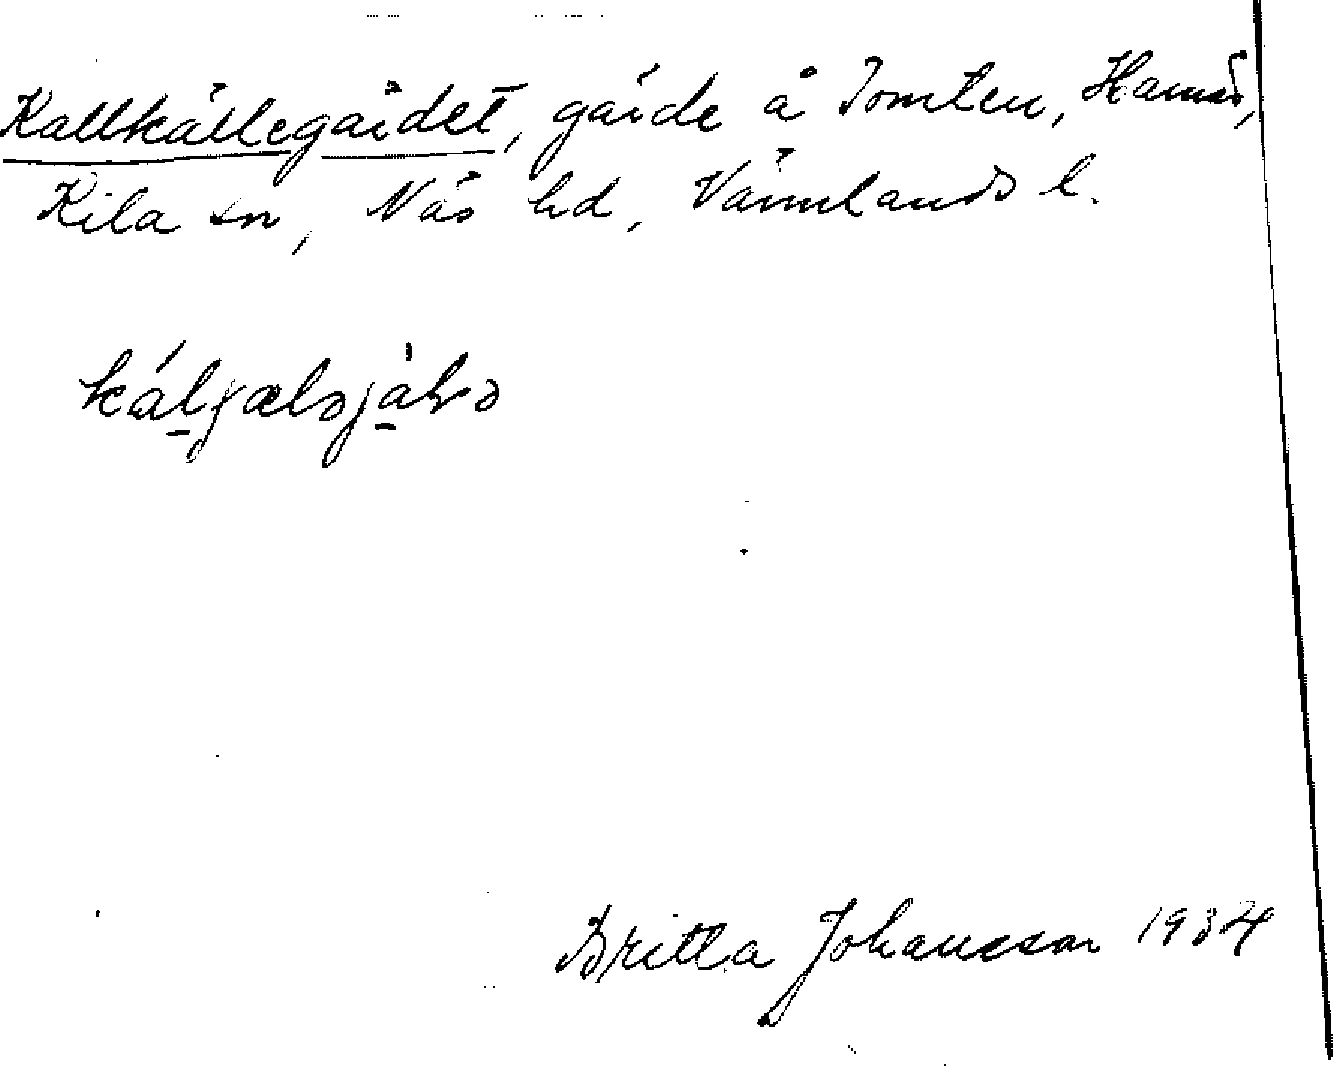 Kallkällegärdet, gärde å Tomten, Hamrå,
Kila sn, Näs hd, Värmlands l.
Britta Johansson 1934